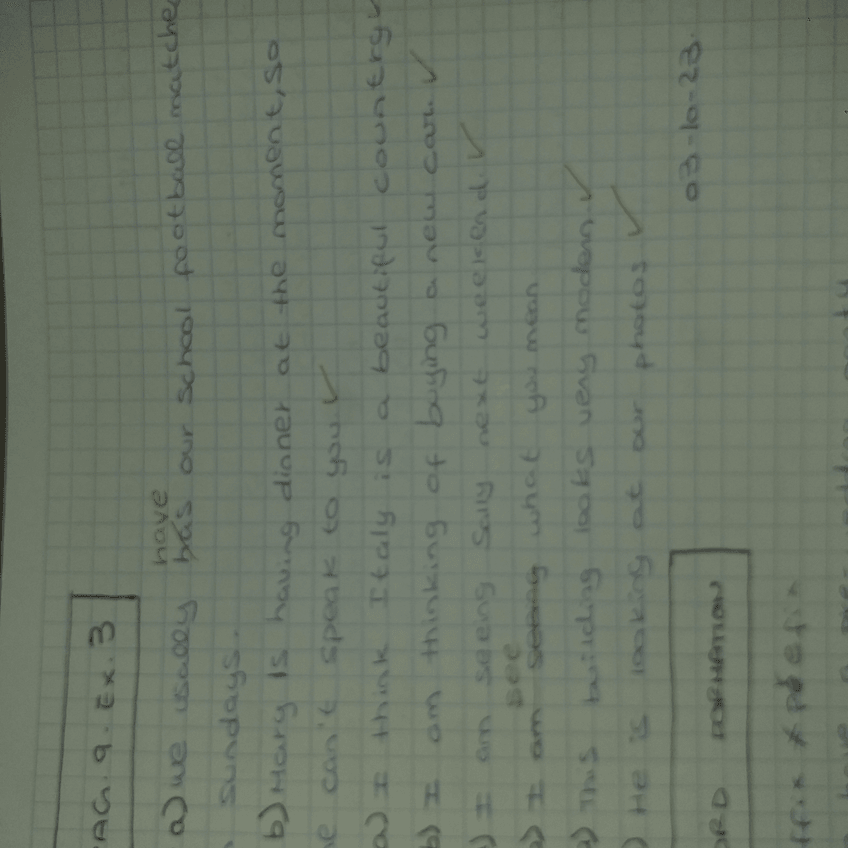 PAG. 9. Ex. 3
have
a) we usally has our school football matches
sundays.
b) Mary Is having dinner at the moment, so
he can't speak to you. ✓
a) I think Italy is a beautiful country ✓
b) I am thinking of buying a new car. ✓
) I am seeing Sally next weekend. ✓
see
b) I am seeing what you mean
a) This building looks very modern. ✓
) He is looking at our photos ✓
03-10-23.
ORD FORMATION
ffix prefix